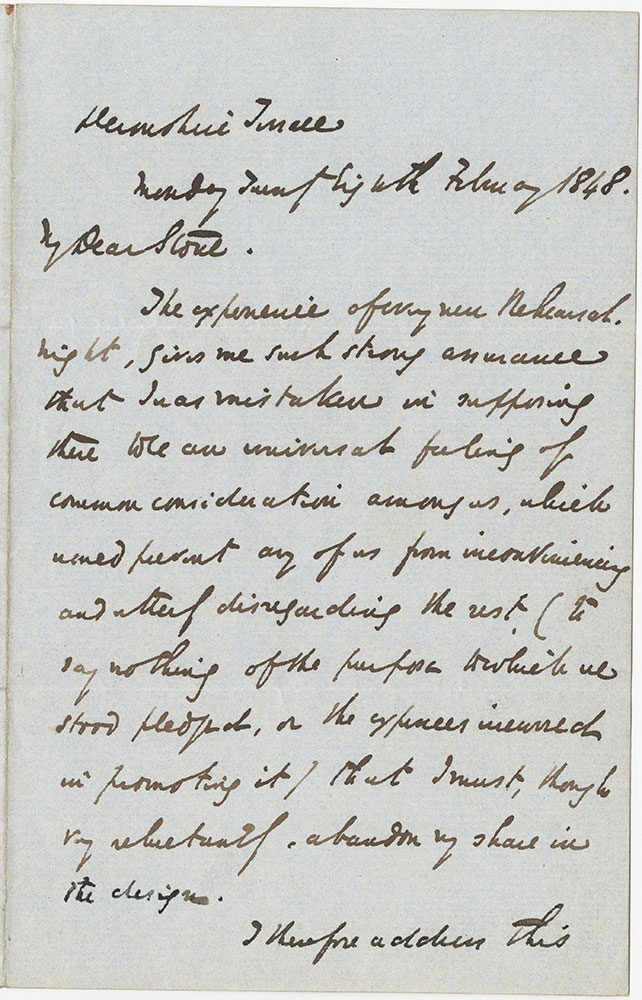 Devonshire Terrace
Monday Twenty Eighth February 1848.
My Dear Stone.
The experience of every new Rehearsal
night, gives me such strong assurance
that I was mistaken in supposing
there was an universal feeling of
common consideration among us, which
would prevent any of us from inconveniencing
and utterly disregarding the rest (to
say nothing of the purpose to which we
stood pledged, or the expences incurred
in promoting it) that I must, though
very reluctantly, abandon my share in
the design.
I therefore address this